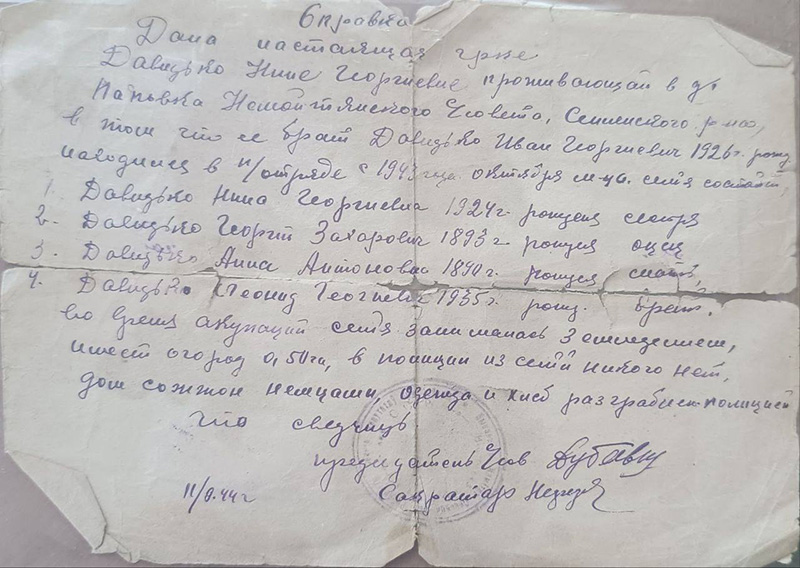 Справка
Дана настаящая грке
Давидько Нине Георгиевне проживающай в д.
Папьвка Немойтянского с/совета, Сенненского р-на,
в том что ее брат Давидько Иван Георгиевич 1926 г. рожд
находился в п/отряде с 1943 года октября м-ца. семя состаит,
1. Давидько Нина Георгиевна 1924 г. рождения сестра
2. Давидько Георгий Захарович 1893 г. рождения отец
3. Давидько Анна Антоновна 1890 г. рождения мать,
4. Давидько Леонид Георгиевич 1935 г. рожд. брат.
во время акупаций семя занималась земледением,
имеет огород 0,50 га, в полиции из семй никого нет,
дом сожжон немцами, одежда и хлеб разграблен полицией
что сведчиць
председатель с/сов
Сакратар
11/9.44 г